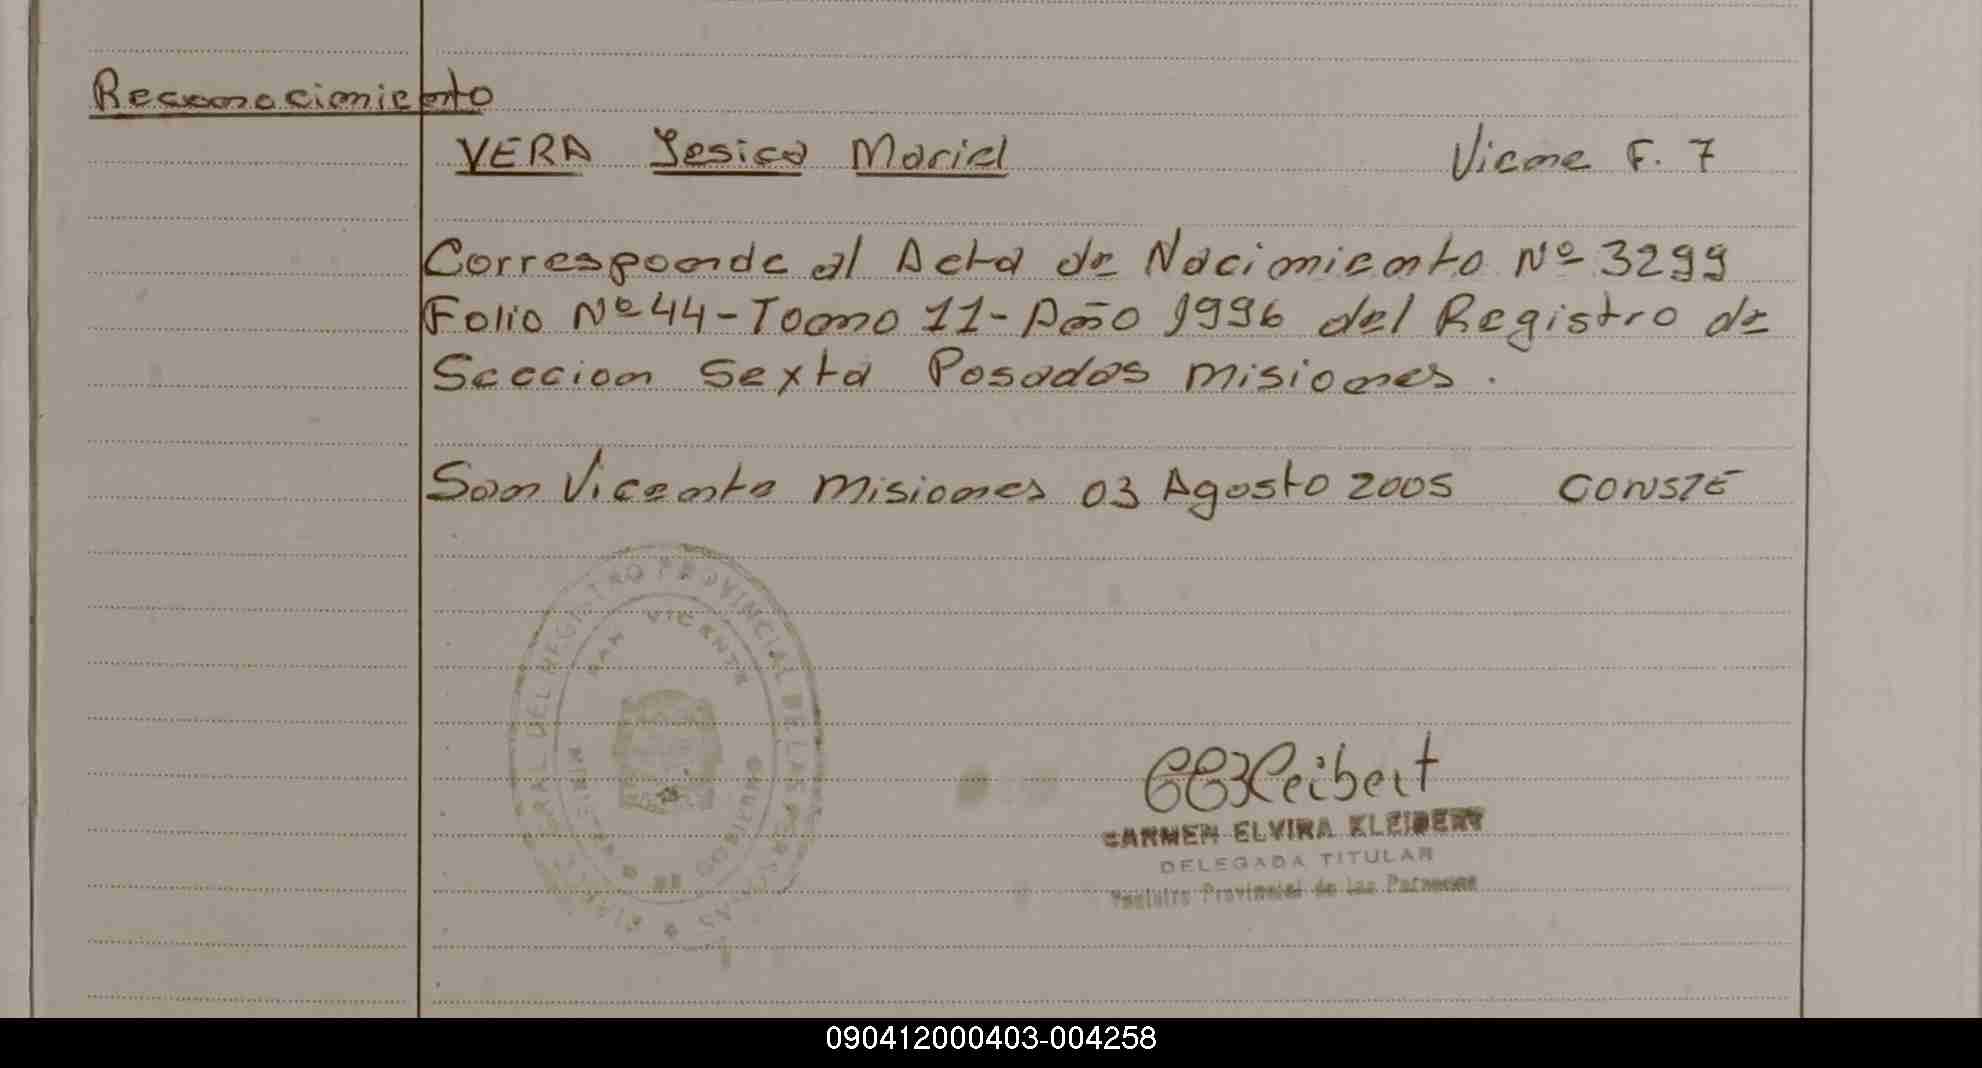 Reconocimiento
VERA Jesica Mariel Viene F. 7
Corresponde al Acta de Nacimiento Nº 3299
Folio Nº 44 - Tomo 11 - Año 1996 del Registro de
Seccion Sexta Posadas Misiones.
San Vicente Misiones 03 Agosto 2005 CONSTE
DEL REGISTRO PROVINCIAL DE LAS PERSONAS
SAN VICENTE
GUARANI
MISIONES
CEKleibert
CARMEN ELVIRA KLEIBERT
DELEGADA TITULAR
Registro Provincial de las Personas
090412000403-004258